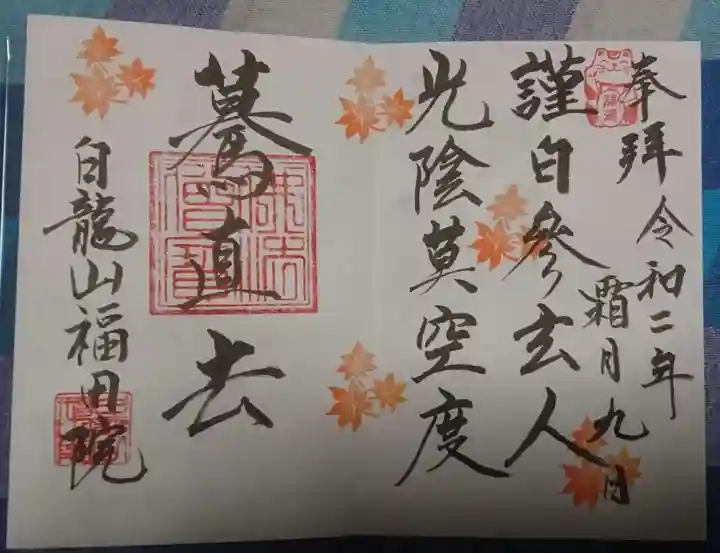 奉拜
令和二年
霜月九日
謹白参玄人
光陰莫空度
驀直去
佛法僧寳
白龍山福田院